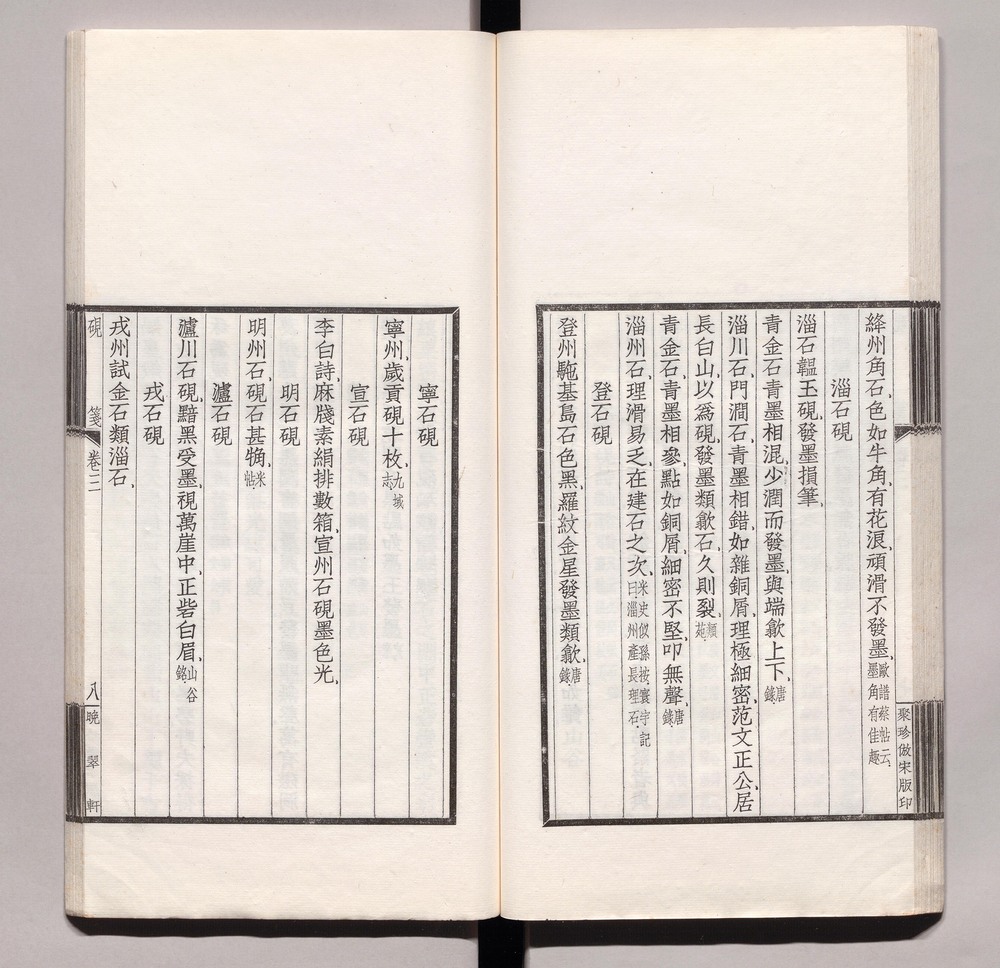 絳州角石色如牛角有花浪頑滑不發墨歐譜蔡帖云墨角有佳趣
淄石硯
淄石韞玉硯發墨損筆
青金石青墨相混少潤而發墨與端歙上下唐錄
淄川石門澗石青墨相錯如雜銅屑理極細密范文正公居
長白山以爲硯發墨類歙石久則裂類苑
青金石青墨相參點如銅屑細密不堅叩無聲唐錄
淄州石理滑易乏在建石之次米史似孫按寰宇記曰淄州產長理石
登石硯
登州駞基島石色黑羅紋金星發墨類歙唐錄
聚珍倣宋版印
寧石硯
寧州歲貢硯十枚九域志
宣石硯
李白詩麻牋素絹排數箱宣州石硯墨色光
明石硯
明州石硯石甚觕米帖
瀘石硯
瀘川石硯黯黑受墨視萬崖中正砦白眉山谷銘
戎石硯
戎州試金石類淄石
硯箋 卷三 八 晩翠軒